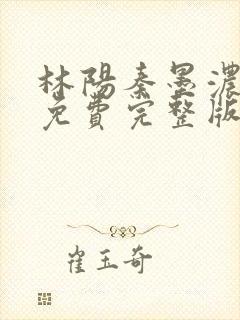 林陽秦墨濃
免費完整版
崔玉奇